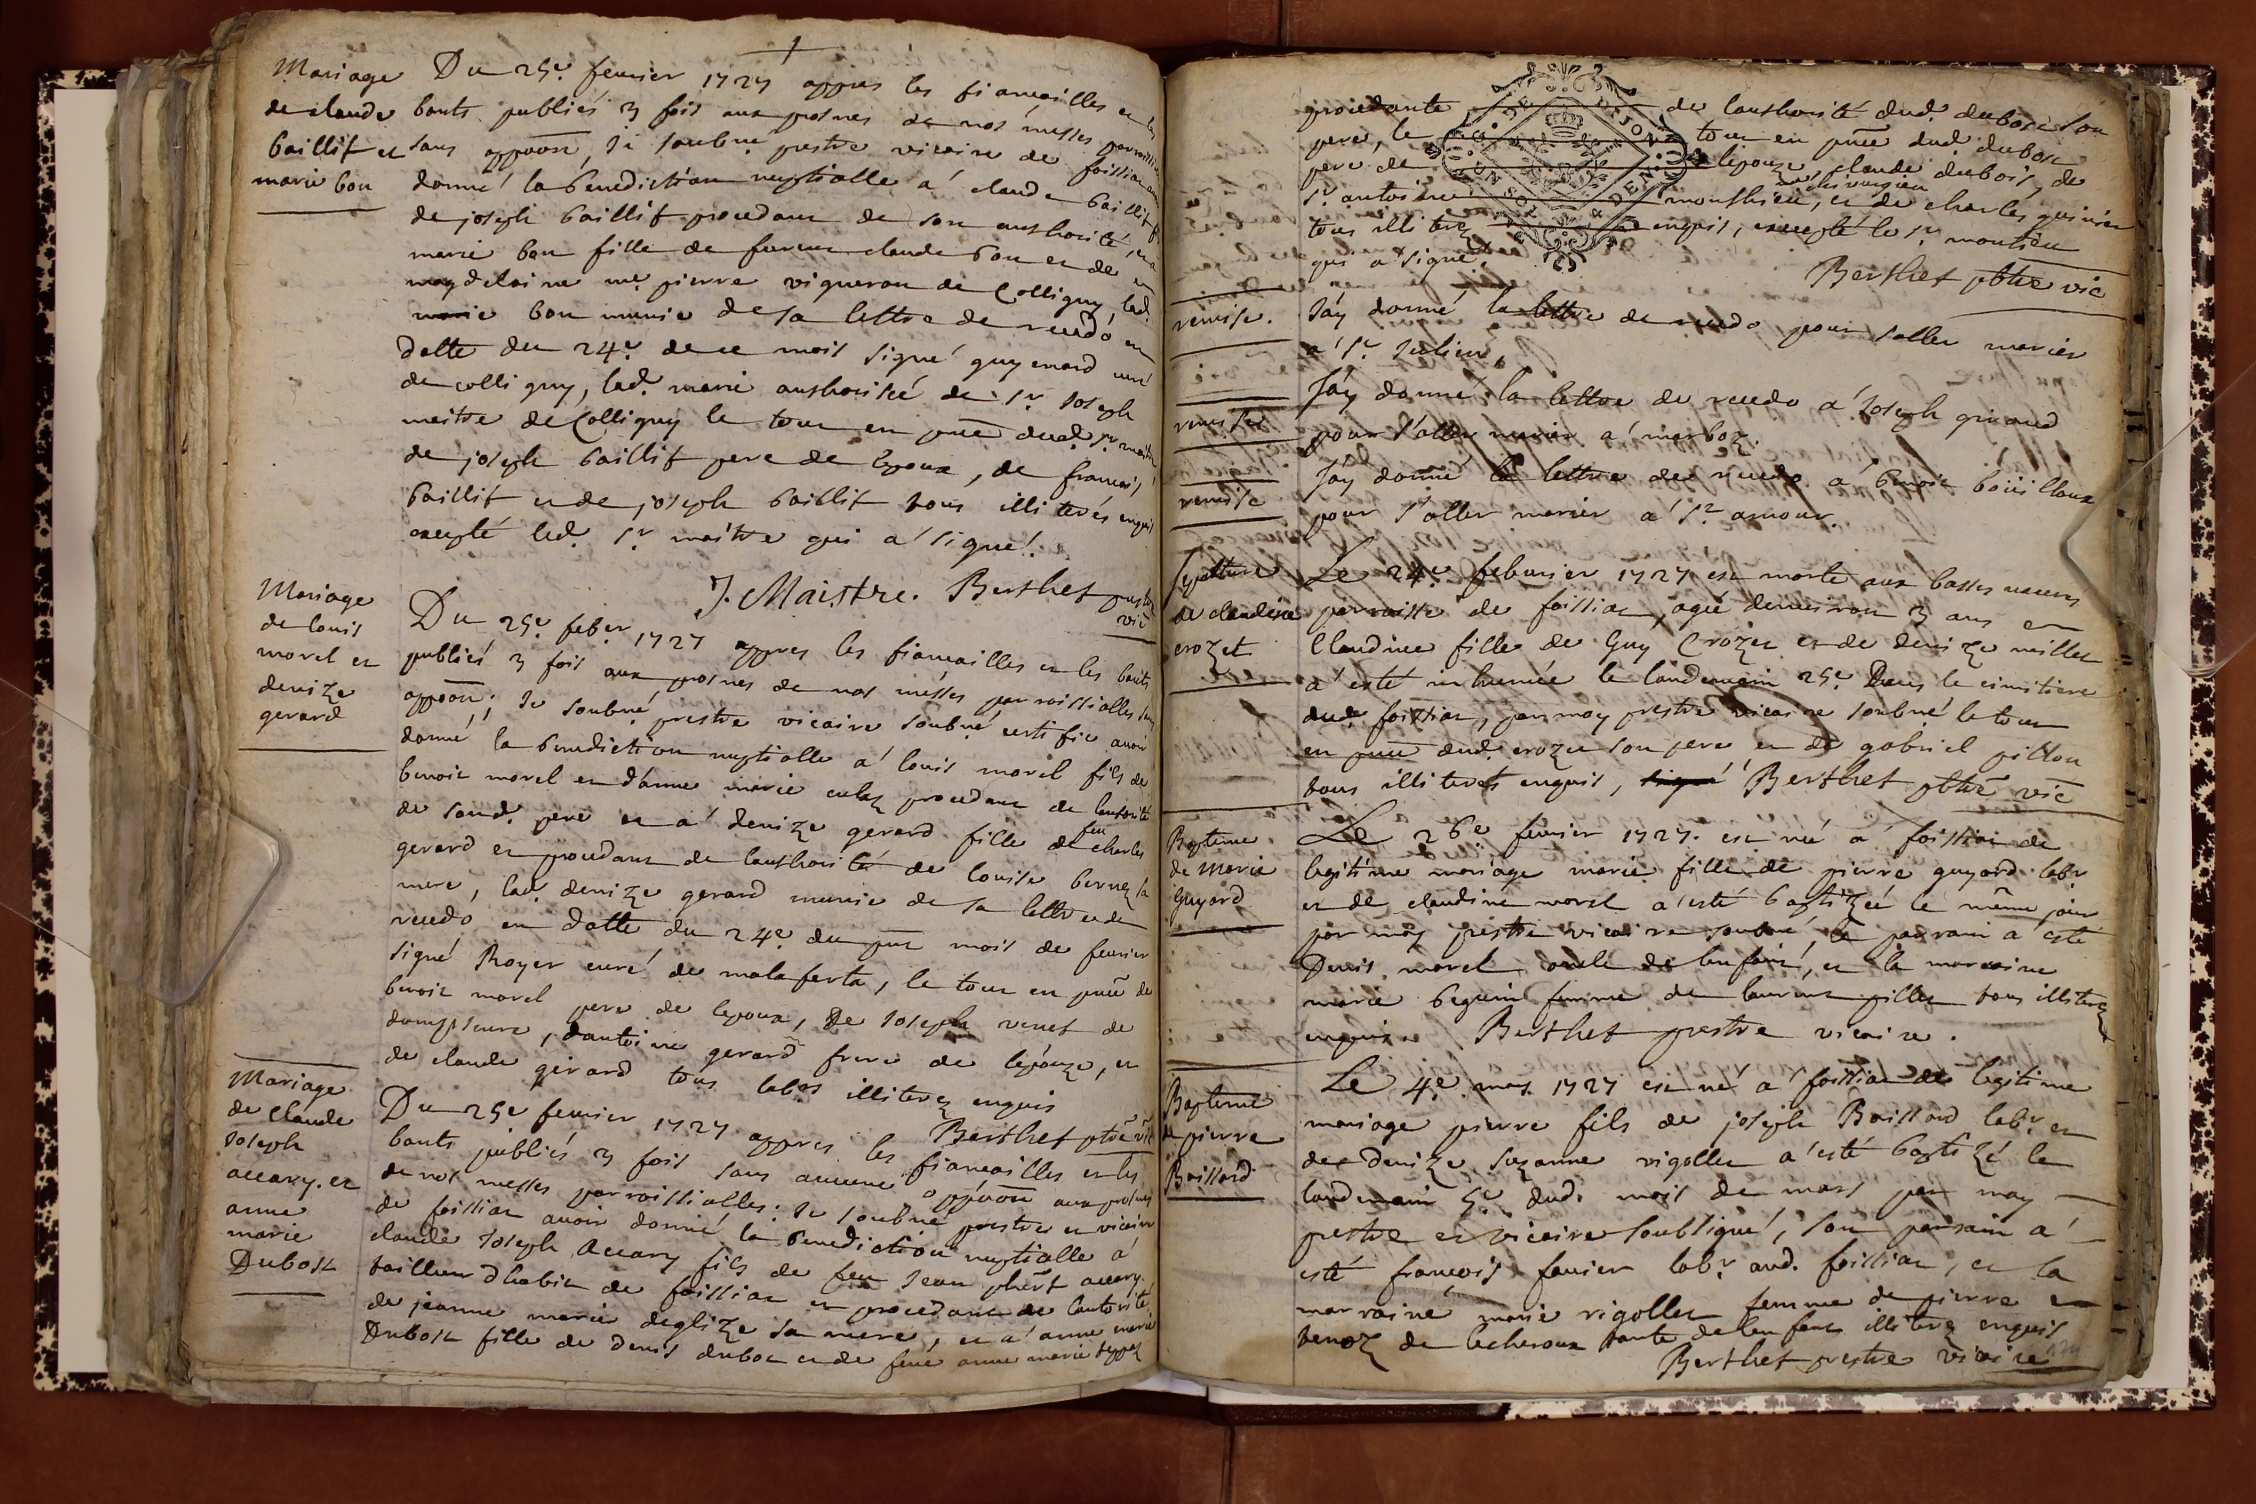 Mariage
de claude
baillif et
marie bon
Du 25e. feurier 1727 appres les fiançailles et les
bants publiés 3 fois aux prosnes de nos messes parroissialles
sans oppoōn, Je soubné prestre vicaire de foissiat
donné la benediction nuptialle a claude baillif f.
de joseph baillif procedant de son authorité, et a
marie bon fille de furent claude bon et de
magdelaine me. pierre vigneron de Colligny, lad.
marie bon munie de sa lettre de recedo en
datte du 24e. de ce mois signé guymard curé
de colligny, lad. marie authorisée de sr. Joseph
maitre de Colligny le tout en pnce dud. sr. maitre
de joseph baillif pere de lepoux, de francois
baillif et de joseph baillif tous illiterés enquis
excepté led. sr. maitre qui a signé.
J. Maistre. Berthet prestre
vic
Mariage
de louis
morel et
denize
gerard
Du 25e. feber 1727 appres les fiancailles et les bants
publiés 3 fois aux prosnes de nos messes parroissialles sans
oppoōn; Je soubné prestre vicaire soubné certifie avoir
donné la benediction nuptialle a louis morel fils de
benoit morel et d'anne marie procedant de lautorité
de sond. pere et a denize gerard fille de feu charles
gerard et procedant de lauthorité de louise sa
mere, lad. denize gerard munie de sa lettre de
recedo en datte du 24e. du pnt mois de feurier
signé Royer curé de malaferta, le tout en pnce de
benoit morel pere de lepoux, De Joseph de
dompsieure, dantoine gerard frere de lepouze, et
de claude girard tous labrs illiterez enquis
Berthet ptre vic
Mariage
de Claude
Joseph
accary. et
anne
marie
Dubost
Du 25e feurier 1727 appres les fiancailles et les
bants publiés 3 fois sans aucune oppoōn aux prosnes
de nos messes parroissialles: Je soubné prestre et vicaire
de foissiat avoir donné la benediction nuptialle a
claude Joseph Accary fils de feu Jean phert accary.
tailleur dhabit de foissiat et procedant de lautorité
de jeanne marie deglize sa mere, et a anne marie
Dubost fille de Denis dubost et de feue anne marie
procedante de lauthorité dud. dubost son
pere, le tout en pnce dud. dubost
pere de lepouze, claude dubois, de
sr. antoine monthieu, chirurgien et de charles
tous illiterez enquis, excepté le sr. montieu
qui a signé.
Berthet pbtre vic
remise.
Jáy donné la lettre de recedo pour saller marier
a St. Julien,
remise
Jáy donné la lettre de recedo a Joseph giraud
pour s'aller marier a marboz.
remise
Jáy donné la lettre de recedo a benoit boüilloux
pour s'aller marier a St. amour.
Sepulture
de claudine
crozet
Le 24e. feburier 1727 est morte aux basses
parroisse de foissiat, agée denuiron 3 ans
Claudine fille de Guy Crozet et de denize millet
a esté inhumée le landemain 25e. Dans le cimitiere
dud. foissiat, par moy prestre vicaire soubné le tout
en pnce dud. crozet son pere et de gabriel pillon
tous illiterés enquis, signé Berthet pbtre vic
Bapteme
de Marie
Guyard
Le 26e feurier 1727. est né a foissiat de
legitime mariage marie fille de pierre guyard labr.
et de claudine morel a esté baptizée le même jour
par moy prestre vicaire soubné, le parrain a esté
Denis morel oncle de lenfant, et la marraine
marie beguin femme de laurent pillon tous illiterez
enquis. Berthet prestre vicaire.
Bapteme
de pierre
Boissard
Le 4e. mars 1727 est né a foissiat de legitime
mariage pierre fils de joseph Boissard labr. et
de Denize Suzanne rigollet a esté baptizé le
landemain 5e. dud. mois de mars par moy
prestre et vicaire soubsigné, son parrain a
esté françois fauier labr. aud. foissiat, et la
marraine marie rigollet femme de pierre
benoz de lescheroux tante de lenfant illiterez enquis
Berthet prestre vicaire